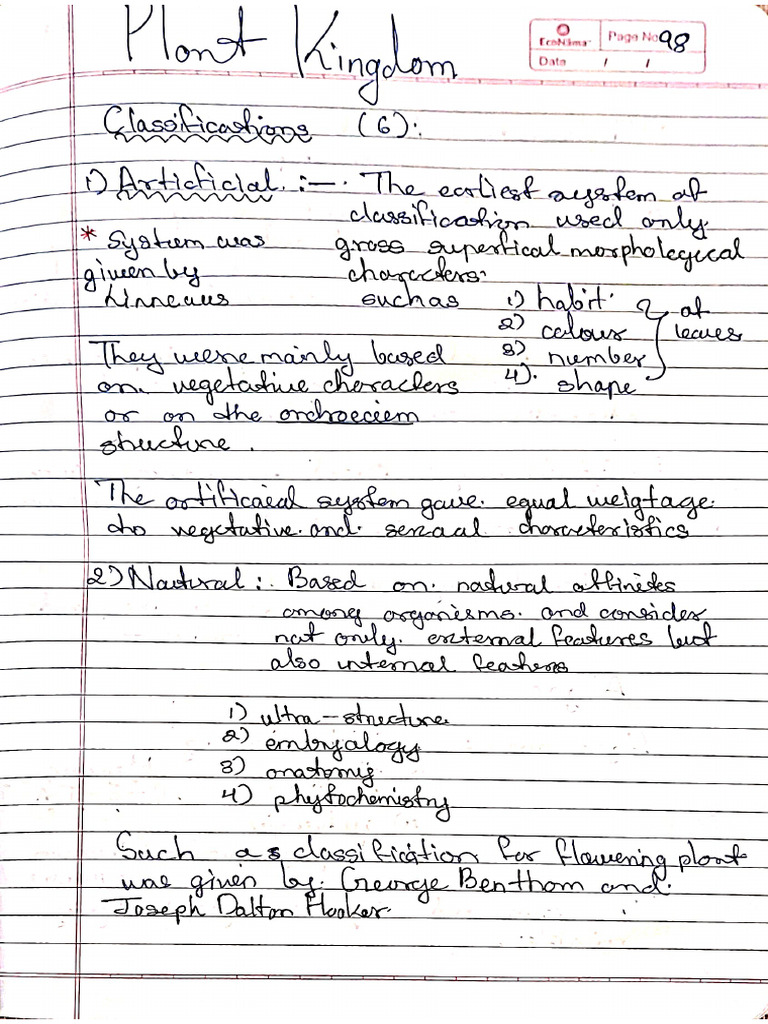 Plant Kingdom
EcoNama
Page No 98
Date / /
Classifications (6):
1) Artificial :—. The earliest system of
classification used only
* System was gross superfical morphological
given by characters.
Linneaus suchas 1) habit
2) colour
3) number
4) shape
of leaves
They were mainly based
on vegetative characters
or on the androecium
structure.
The artificaial system gave equal weigtage
to vegetative and sexual characteristics
2) Natural :. Based on natural affinites
among organisms and consider
not only external features but
also internal features
1) ultra-structure
2) embryalogy
3) anatomy
4) phytochemistry
Such as classification for flowening plant
was given by George Bentham and
Joseph Dalton Hooker.